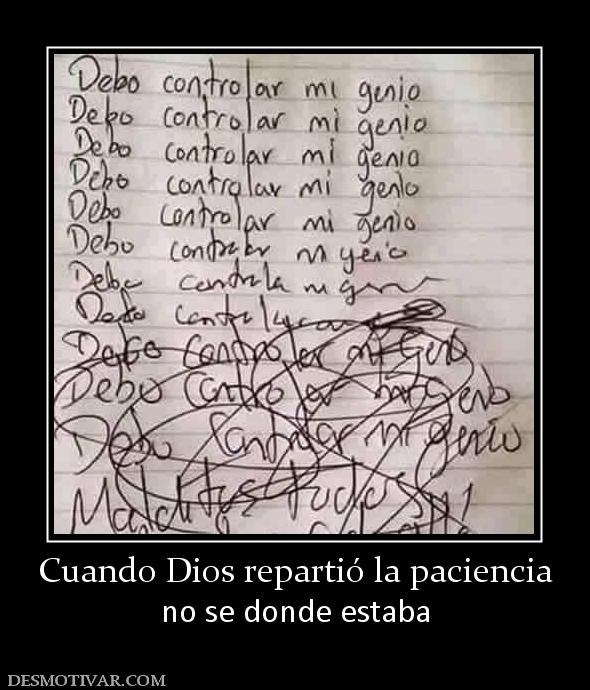 Debo controlar mi genio
Debo controlar mi genio
Debo controlar mi genio
Debo controlar mi genio
Debo controlar mi genio
Debo controlar mi genio
Debo
Debo
Debo Controlar mi Genio
Debo Controlar mi genio
Debo Controlar mi genio
Malditos todos
Cuando Dios repartió la paciencia
no se donde estaba
DESMOTIVAR.COM